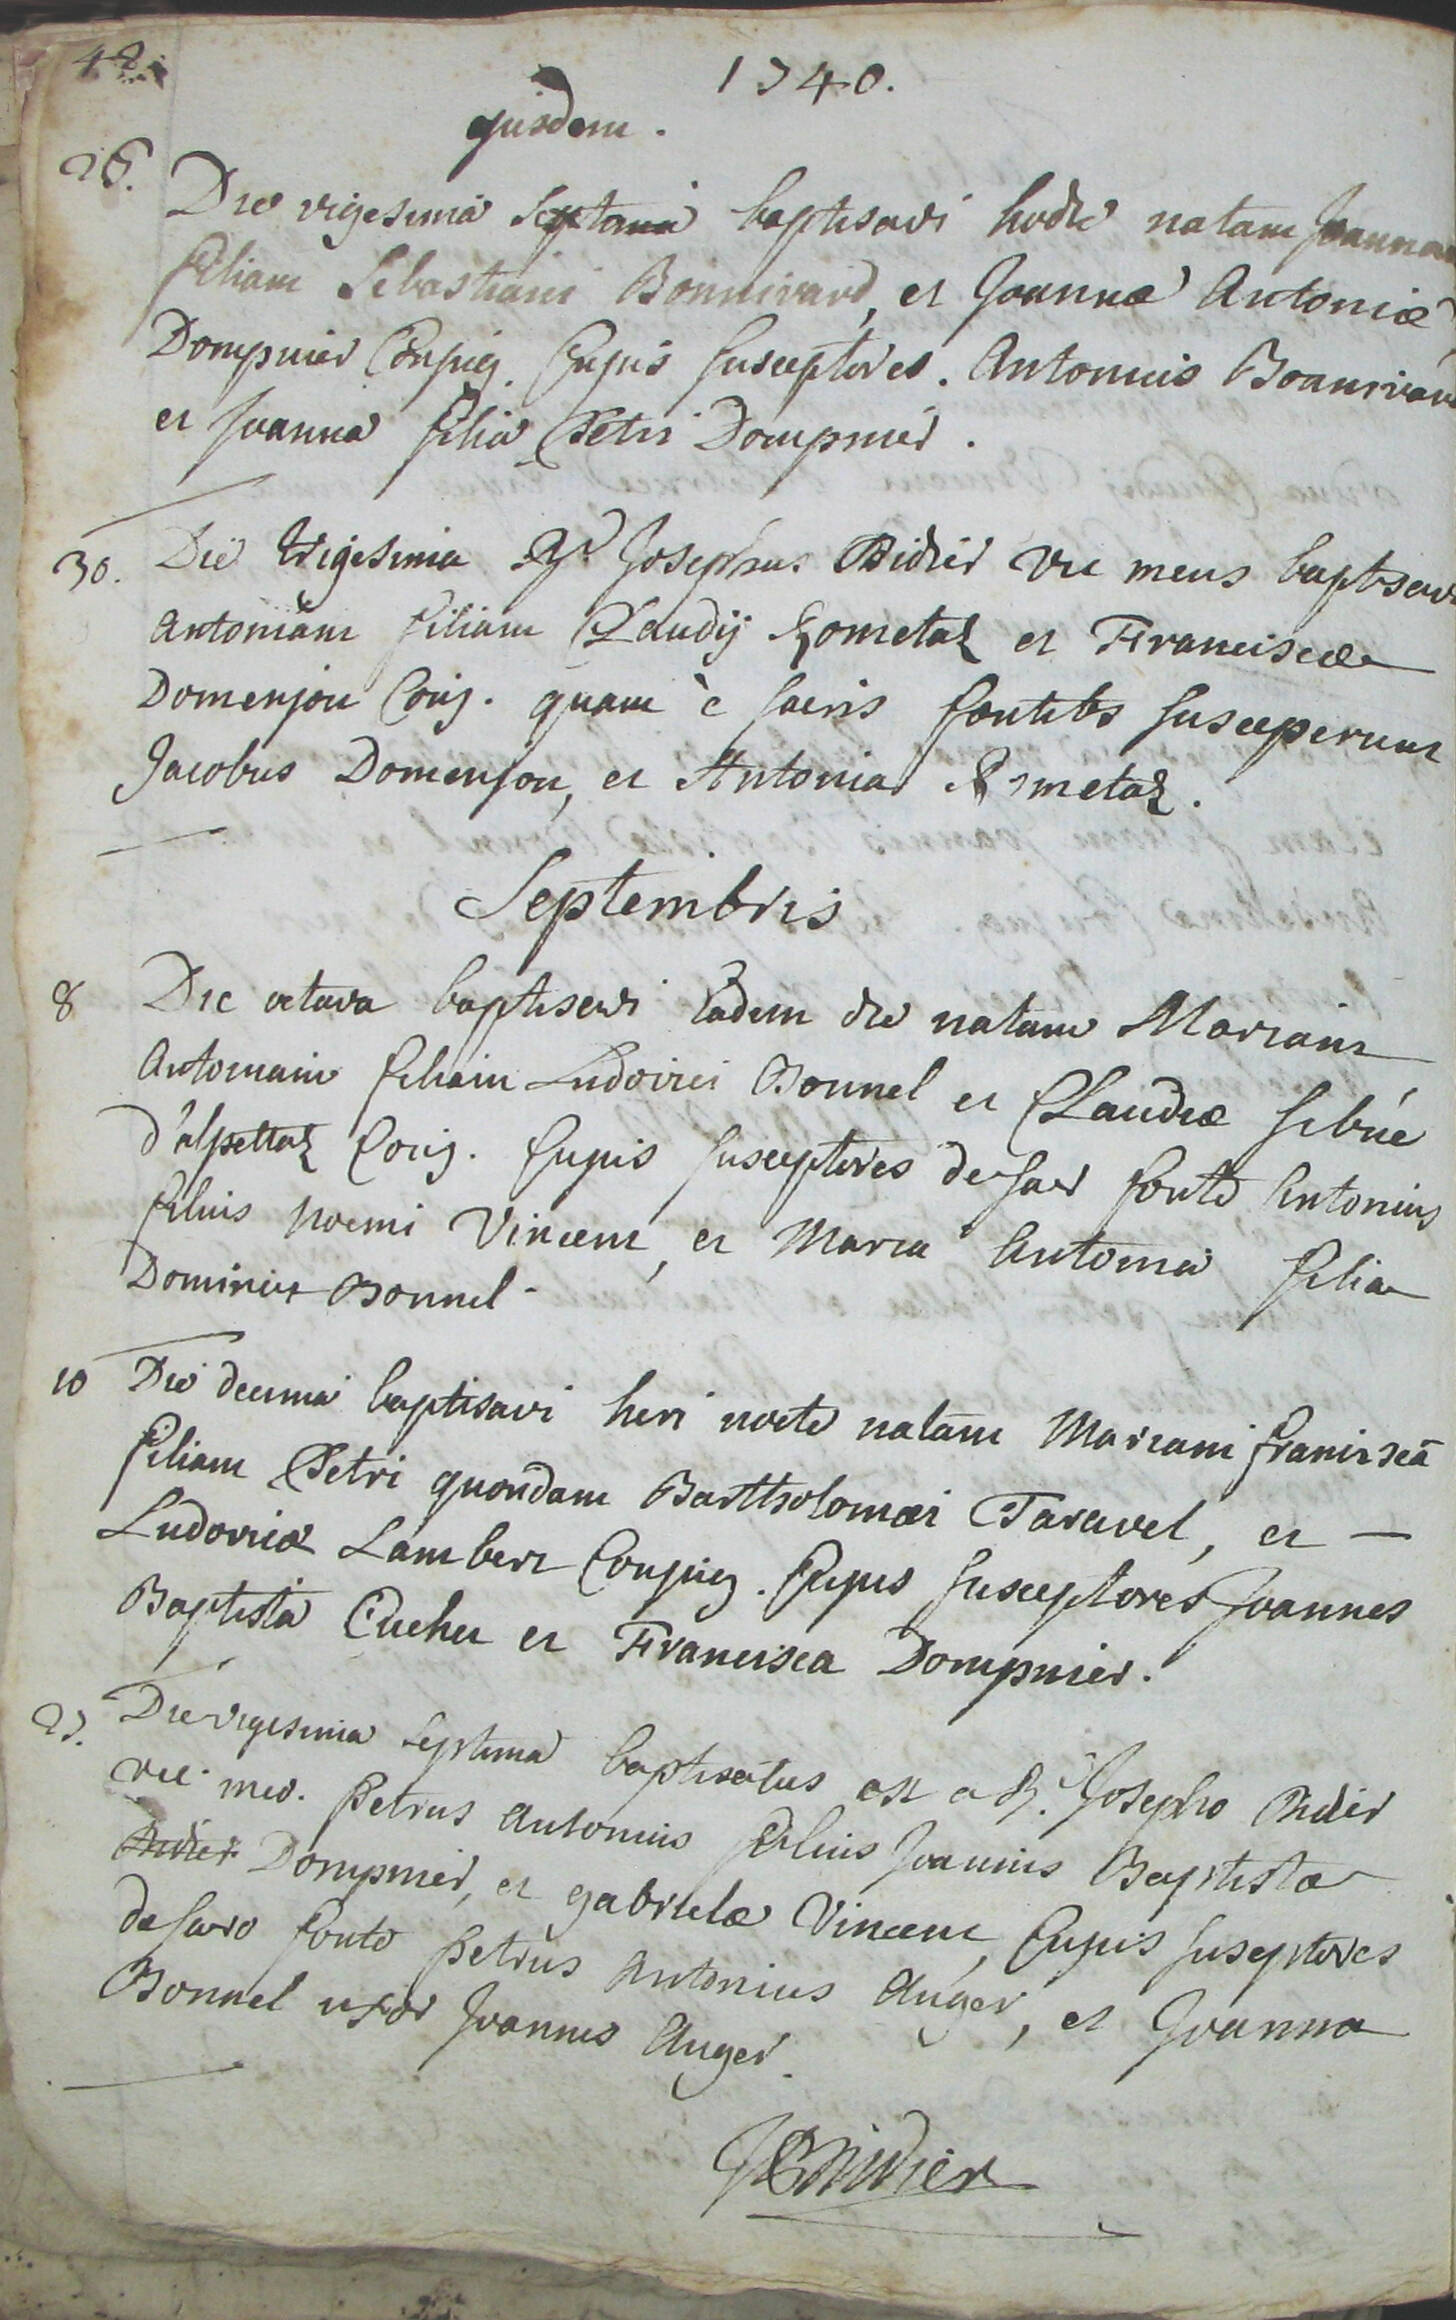 42
1740.
ejusdem.
26. Die vigesima septima baptisavi hodie natam Joannam
filiam Sebastiani Bonnivard, et Joannæ Antoniæ
Dompnier Conjug. Cujus susceptores. Antonius Bonnivard
et Joanna filia Petri Dompnier.
30. Die trigesima Rd Josephus Didier Vic meus baptisavit
Antoniam filiam Claudij Rometaz et Franciscæ
Domenjon Conj. quam è sacris fontibs susceperunt
Jacobus Domenjon, et Antonia Rometaz.
Septembris
8 Die octava baptisavi Eadem die natam Mariam
Antoniam filiam Ludovici Bonnel et Claudiæ Sibué
d'alpettaz Conj. Cujus susceptores de sacr fonte Antonius
filius Noemi Vincent, et Maria Antonia filia
Dominici Bonnel.
10 Die decima baptisavi heri nocte natam Mariam franciscā
filiam Petri quondam Barttholomæi Taravel, et —
Ludovicæ Lambert Conjug. Cujus susceptores Joannes
Baptista Cuche et Francisca Dompnier.
27. Die vigesima septima baptisatus est a Rd. Josepho Didier
vic. meo. Petrus Antonius filius Joannis Baptistæ
Didier Dompnier, et gabrielæ Vincent, Cujus susceptores
de sacro fonte Petrus Antonius Auger, et Joanna
Bonnel uxor Joannis Auger.
Didier